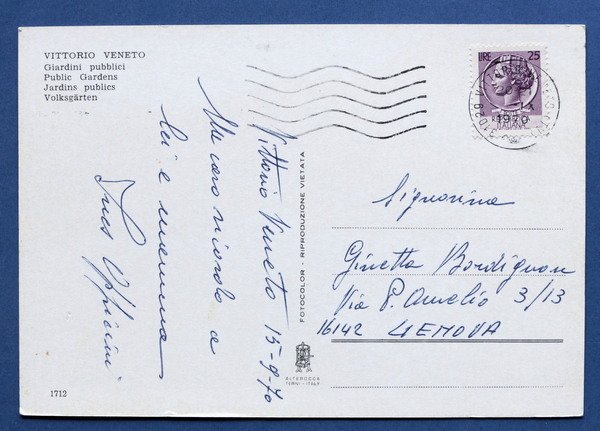 VITTORIO VENETO
Giardini pubblici
Public Gardens
Jardins publics
Volksgärten
Vittorio Veneto 15-9-70
Un caro ricordo a
lei e mamma
Ines
FOTOCOLOR - RIPRODUZIONE VIETATA
LIRE 25
IX
1970
Signorina
Ginetta Bordignon
Via P. Aurelio 3/13
16142 GENOVA
ALTEROCCA
TERNI - ITALY
1712